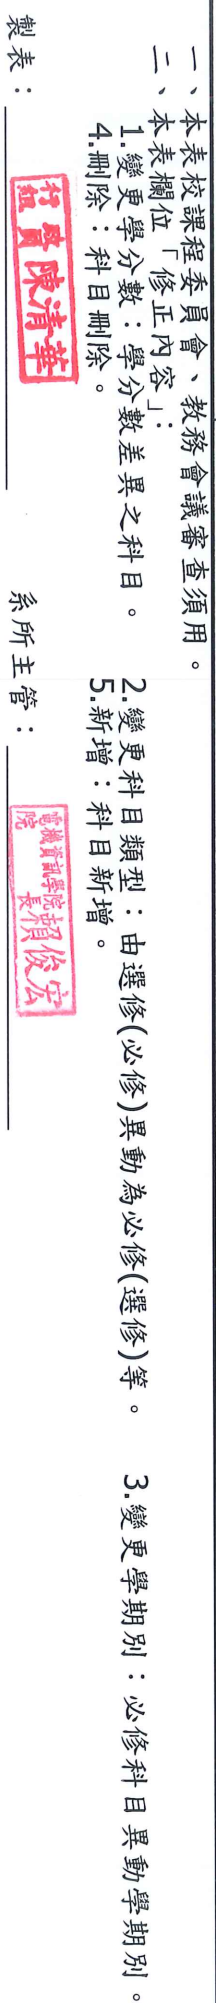 一、本表校課程委員會、教務會議審查須用。
二、本表欄位「修正內容」:
1.變更學分數:學分數差異之科目。 2.變更科目類型:由選修(必修)異動為必修(選修)等。 3.變更學期別:必修科目異動學期別。
4.刪除:科目刪除。 5.新增:科目新增。
製表: 組員陳清華 系所主管: 電機資訊學院院長胡俊宏